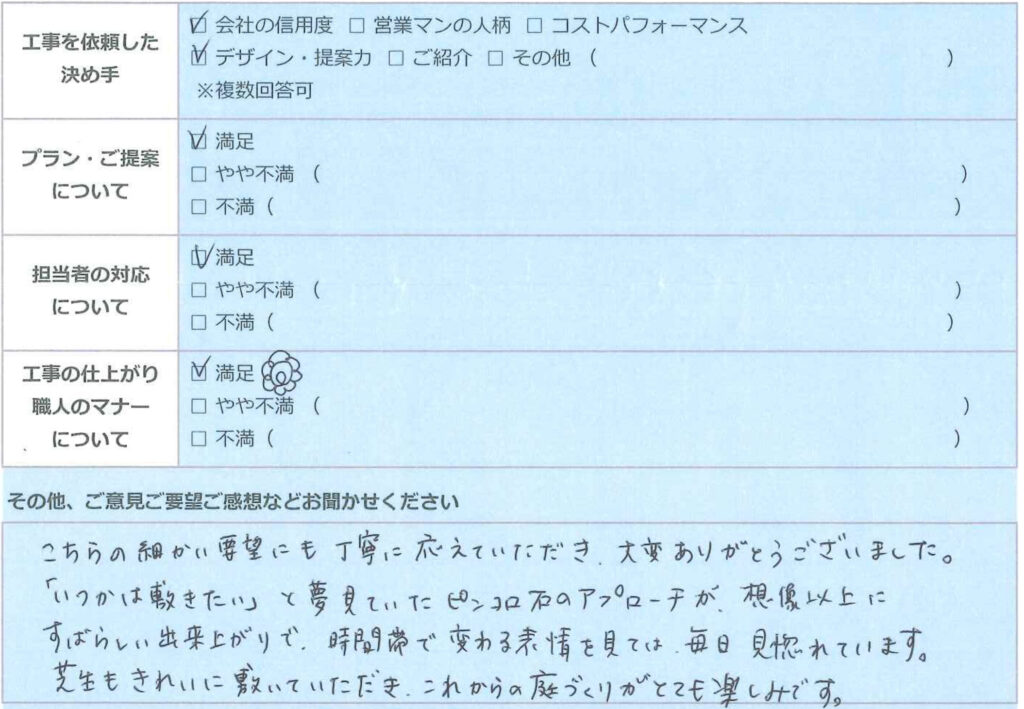 工事を依頼した
決め手
☑ 会社の信用度 □ 営業マンの人柄 □ コストパフォーマンス
☑ デザイン・提案力 □ ご紹介 □ その他 ( )
※複数回答可
プラン・ご提案
について
☑ 満足
□ やや不満 ( )
□ 不満 ( )
担当者の対応
について
☑ 満足
□ やや不満 ( )
□ 不満 ( )
工事の仕上がり
職人のマナー
について
☑ 満足
□ やや不満 ( )
□ 不満 ( )
その他、ご意見ご要望ご感想などお聞かせください
こちらの細かい要望にも丁寧に応えていただき、大変ありがとうございました。
「いつかは敷きたい」と夢見ていたピンコロ石のアプローチが、想像以上に
すばらしい出来上がりで、時間帯で変わる表情を見ては、毎日見惚れています。
芝生もきれいに敷いていただき、これからの庭づくりがとても楽しみです。